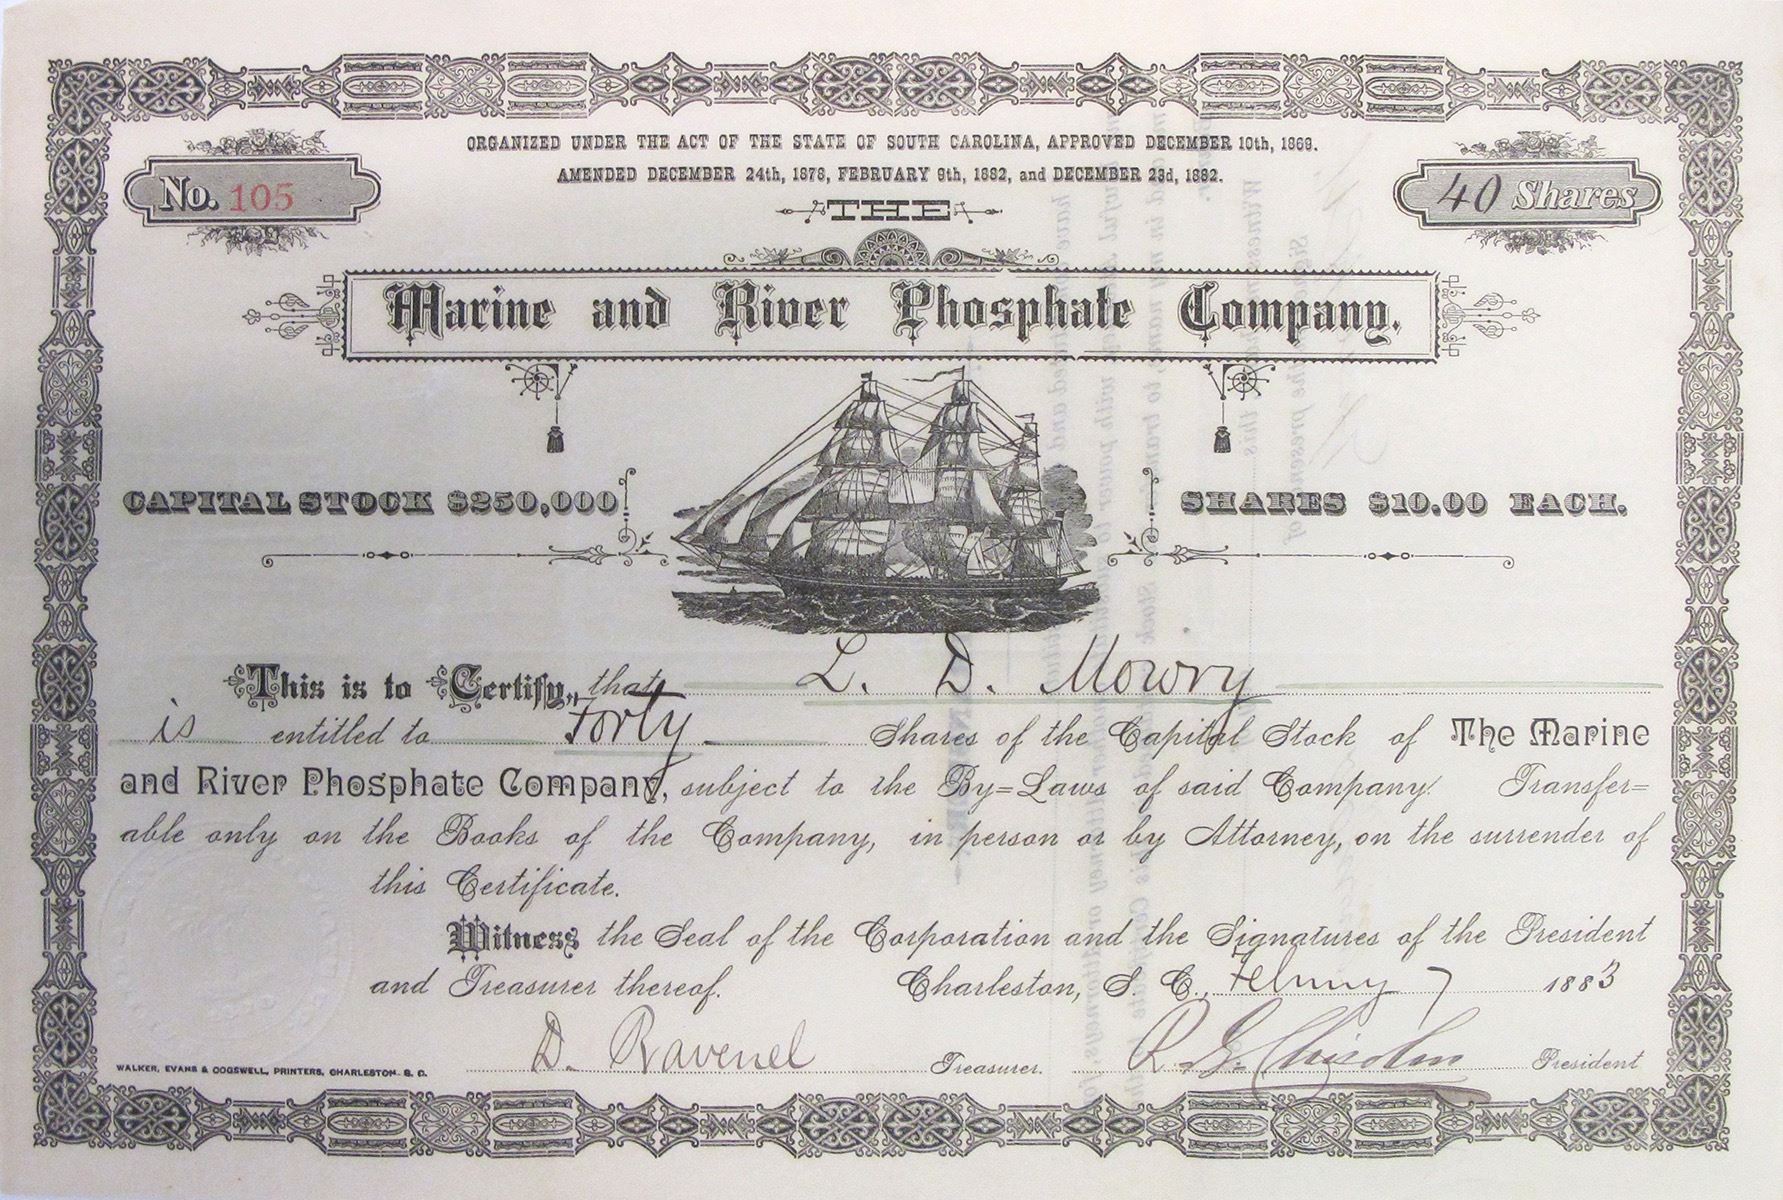 ORGANIZED UNDER THE ACT OF THE STATE OF SOUTH CAROLINA, APPROVED DECEMBER 10th, 1869.
AMENDED DECEMBER 24th, 1878, FEBRUARY 9th, 1882, and DECEMBER 23d, 1882.
No. 105
40 Shares
THE
Marine and River Phosphate Company.
CAPITAL STOCK $250,000
SHARES $10.00 EACH.
This is to Certify, that L. D. Mowry
is entitled to Forty Shares of the Capital Stock of The Marine
and River Phosphate Company, subject to the By=Laws of said Company. Transfer=
able only on the Books of the Company, in person or by Attorney, on the surrender of
this Certificate.
Witness the Seal of the Corporation and the Signatures of the President
and Treasurer thereof. Charleston, S. C., February 7 1883
D. Ravenel Treasurer. R. G. Chisolm President
WALKER, EVANS & COGSWELL, PRINTERS, CHARLESTON. S. C.